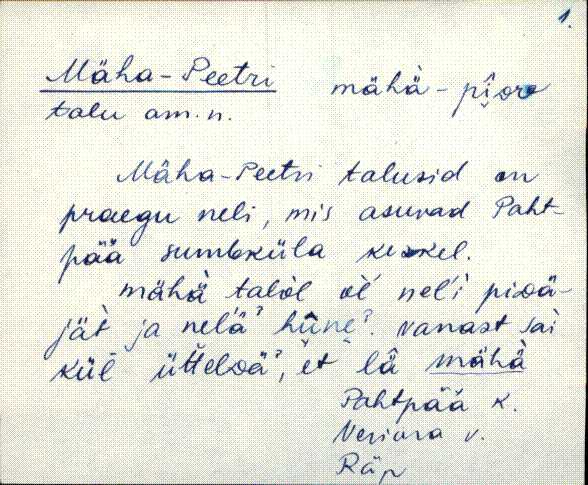 1.
Mäha-Peetri mähà-pi̮orə
talu am. n.
Mäha-Peetri talusid on
praegu neli, mis asuvad Paht-
pää sumbküla keskel.
mähà talòl ol̀ nel'i pi̮ʙä-
jät ja nel'ä? hu̬ne?. vanast sai
kül üťťelʙä?, et lâ mähà
Pahtpää k.
Veriora v.
Räp